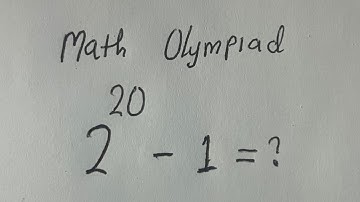 Math Olympiad
2²⁰ - 1 = ?